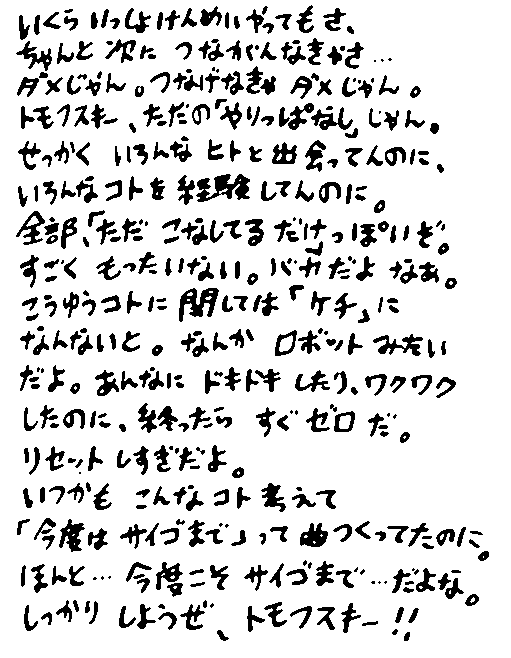 いくら いっしょけんめい やってもさ、
ちゃんと 次に つながんなきゃさ…
ダメじゃん。つなげなきゃ ダメじゃん。
トモフスキー、ただの「やりっぱなし」じゃん。
せっかく いろんな ヒトと出会ってんのに、
いろんなコトを経験してんのに。
全部、「ただ こなしてるだけ」っぽいぞ。
すごく もったいない。バカだよ なあ。
こうゆうコトに関しては「ケチ」に
なんないと。なんか ロボット みたい
だよ。あんなに ドキドキ したり、ワクワク
したのに、終ったら すぐ ゼロ だ。
リセット しすぎだよ。
いつかも こんな コト 考えて
「今度は サイゴまで」って曲つくってたのに。
ほんと… 今度こそ サイゴまで…だよな。
しっかり しようぜ、トモフスキー!!